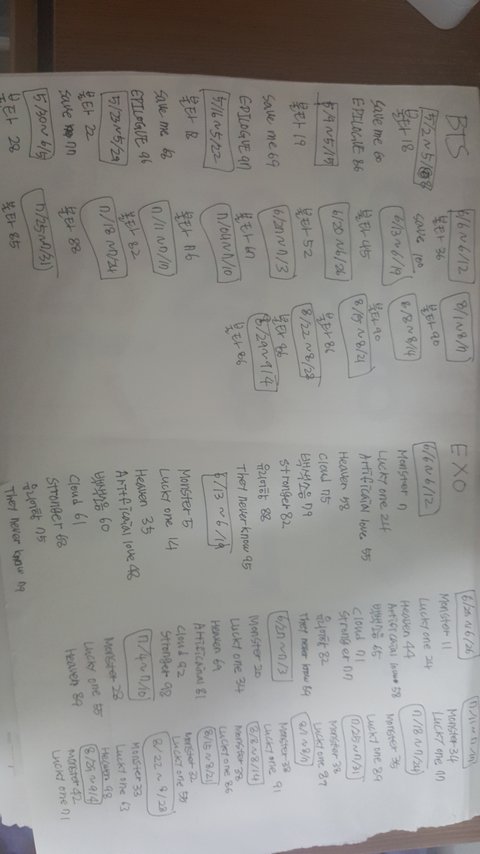 BTS
5/2~5/8
불타 18
Save me 60
EPILOGUE 86
5/9~5/15
불타 19
Save me 69
EPILOGUE 97
5/16~5/22
불타 8
Save me 68
EPILOGUE 96
5/23~5/29
불타 22
Save me 77
5/30~6/5
불타 28
6/6~6/12
불타 36
save 100
6/13~6/19
불타 45
6/20~6/26
불타 52
6/27~7/3
불타 67
7/04~7/10
불타 76
7/11~7/17
불타 82
7/18~7/24
불타 88
7/25~7/31
불타 85
8/1~8/7
불타 90
8/8~8/14
불타 90
8/15~8/21
불타 86
8/22~8/28
불타 86
8/29~9/4
불타 86
EXO
6/6~6/12
Monster 7
Lucky one 24
Artificial love 55
Heaven 58
Cloud 75
백색소음 79
Stronger 82
유리어항 88
They never know 95
6/13~6/19
Monster 5
Lucky one 14
Heaven 35
Artificial love 48
백색소음 60
Cloud 61
Stronger 68
유리어항 75
They never know 79
6/20~6/26
Monster 11
Lucky one 24
Heaven 44
Artificial love 58
백색소음 65
Cloud 71
Stronger 77
유리어항 82
They never know 84
6/27~7/3
Monster 20
Lucky one 34
Heaven 69
Artificial 81
Cloud 92
Stronger 98
7/4~7/10
Monster 28
Lucky one 55
Heaven 84
7/11~7/17
Monster 34
Lucky one 77
7/18~7/24
Monster 35
Lucky one 84
7/25~7/31
Monster 38
Lucky one 87
8/1~8/7
Monster 38
Lucky one 91
8/8~8/14
Monster 38
Lucky one 86
8/15~8/21
Monster 22
Lucky one 58
8/22~8/28
Monster 33
Lucky one 63
Heaven 98
8/29~9/4
Monster 42
Lucky one 71